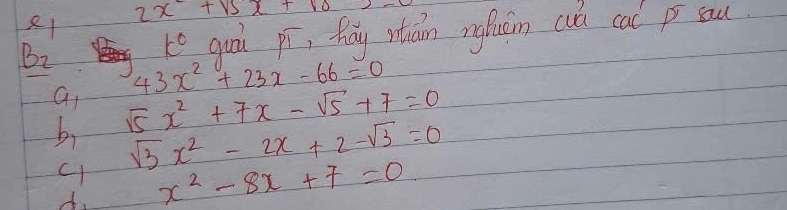 e, 2x² + √5x +
B2 k° giải pt, hãy nhẩm nghiệm của các pt sau.
a, 43x² + 23x - 66 = 0
b, √5x² + 7x - √5 + 7 = 0
c, √3x² - 2x + 2 - √3 = 0
d, x² - 8x + 7 = 0